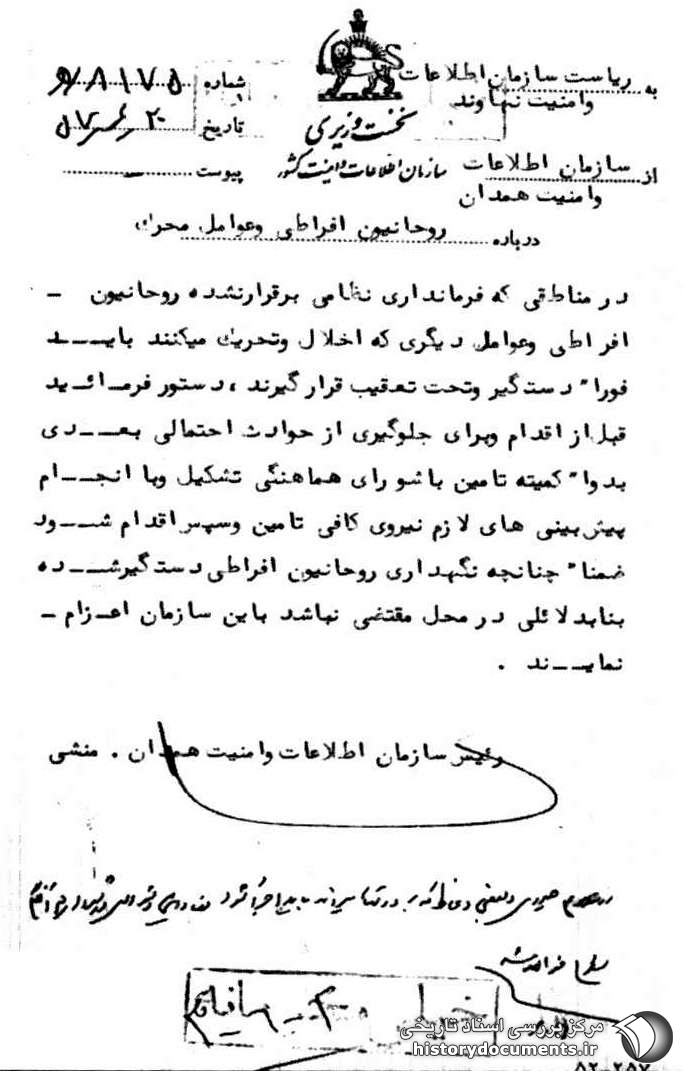 به ریاست سازمان اطلاعات
وامنیت نهاوند
نخست وزیری
سازمان اطلاعات وامنیت کشور
شماره ۸۱۷۵
تاریخ ۲۰
پیوست
از سازمان اطلاعات
وامنیت همدان
درباره روحانیون افراطی وعوامل محرك
در مناطقی که فرمانداری نظامی برقرارنشده روحانیون ـ
افراطی وعوامل دیگری که اخلال وتحریك میکنند بایــد
فورا" دستگیر وتحت تعقیب قرارگیرند ، دستور فرمـائید
قبل از اقدام وبرای جلوگیری از حوادث احتمالی بعــدی
بدوا" کمیته تامین باشورای هماهنگی تشکیل وبا انجــام
پیش بینی های لازم نیروی کافی تامین وسپس اقدام شــود
ضمنا" چنانچه نگهداری روحانیون افراطی دستگیرشــده
بنابدلائلی در محل مقتضی نباشد باین سازمان اعـزام ـ
نمایــند .
رئیس سازمان اطلاعات وامنیت همدان . منشی
مرکز بررسی اسناد تاریخی
historydocuments.ir
۵۲-۲۵۷